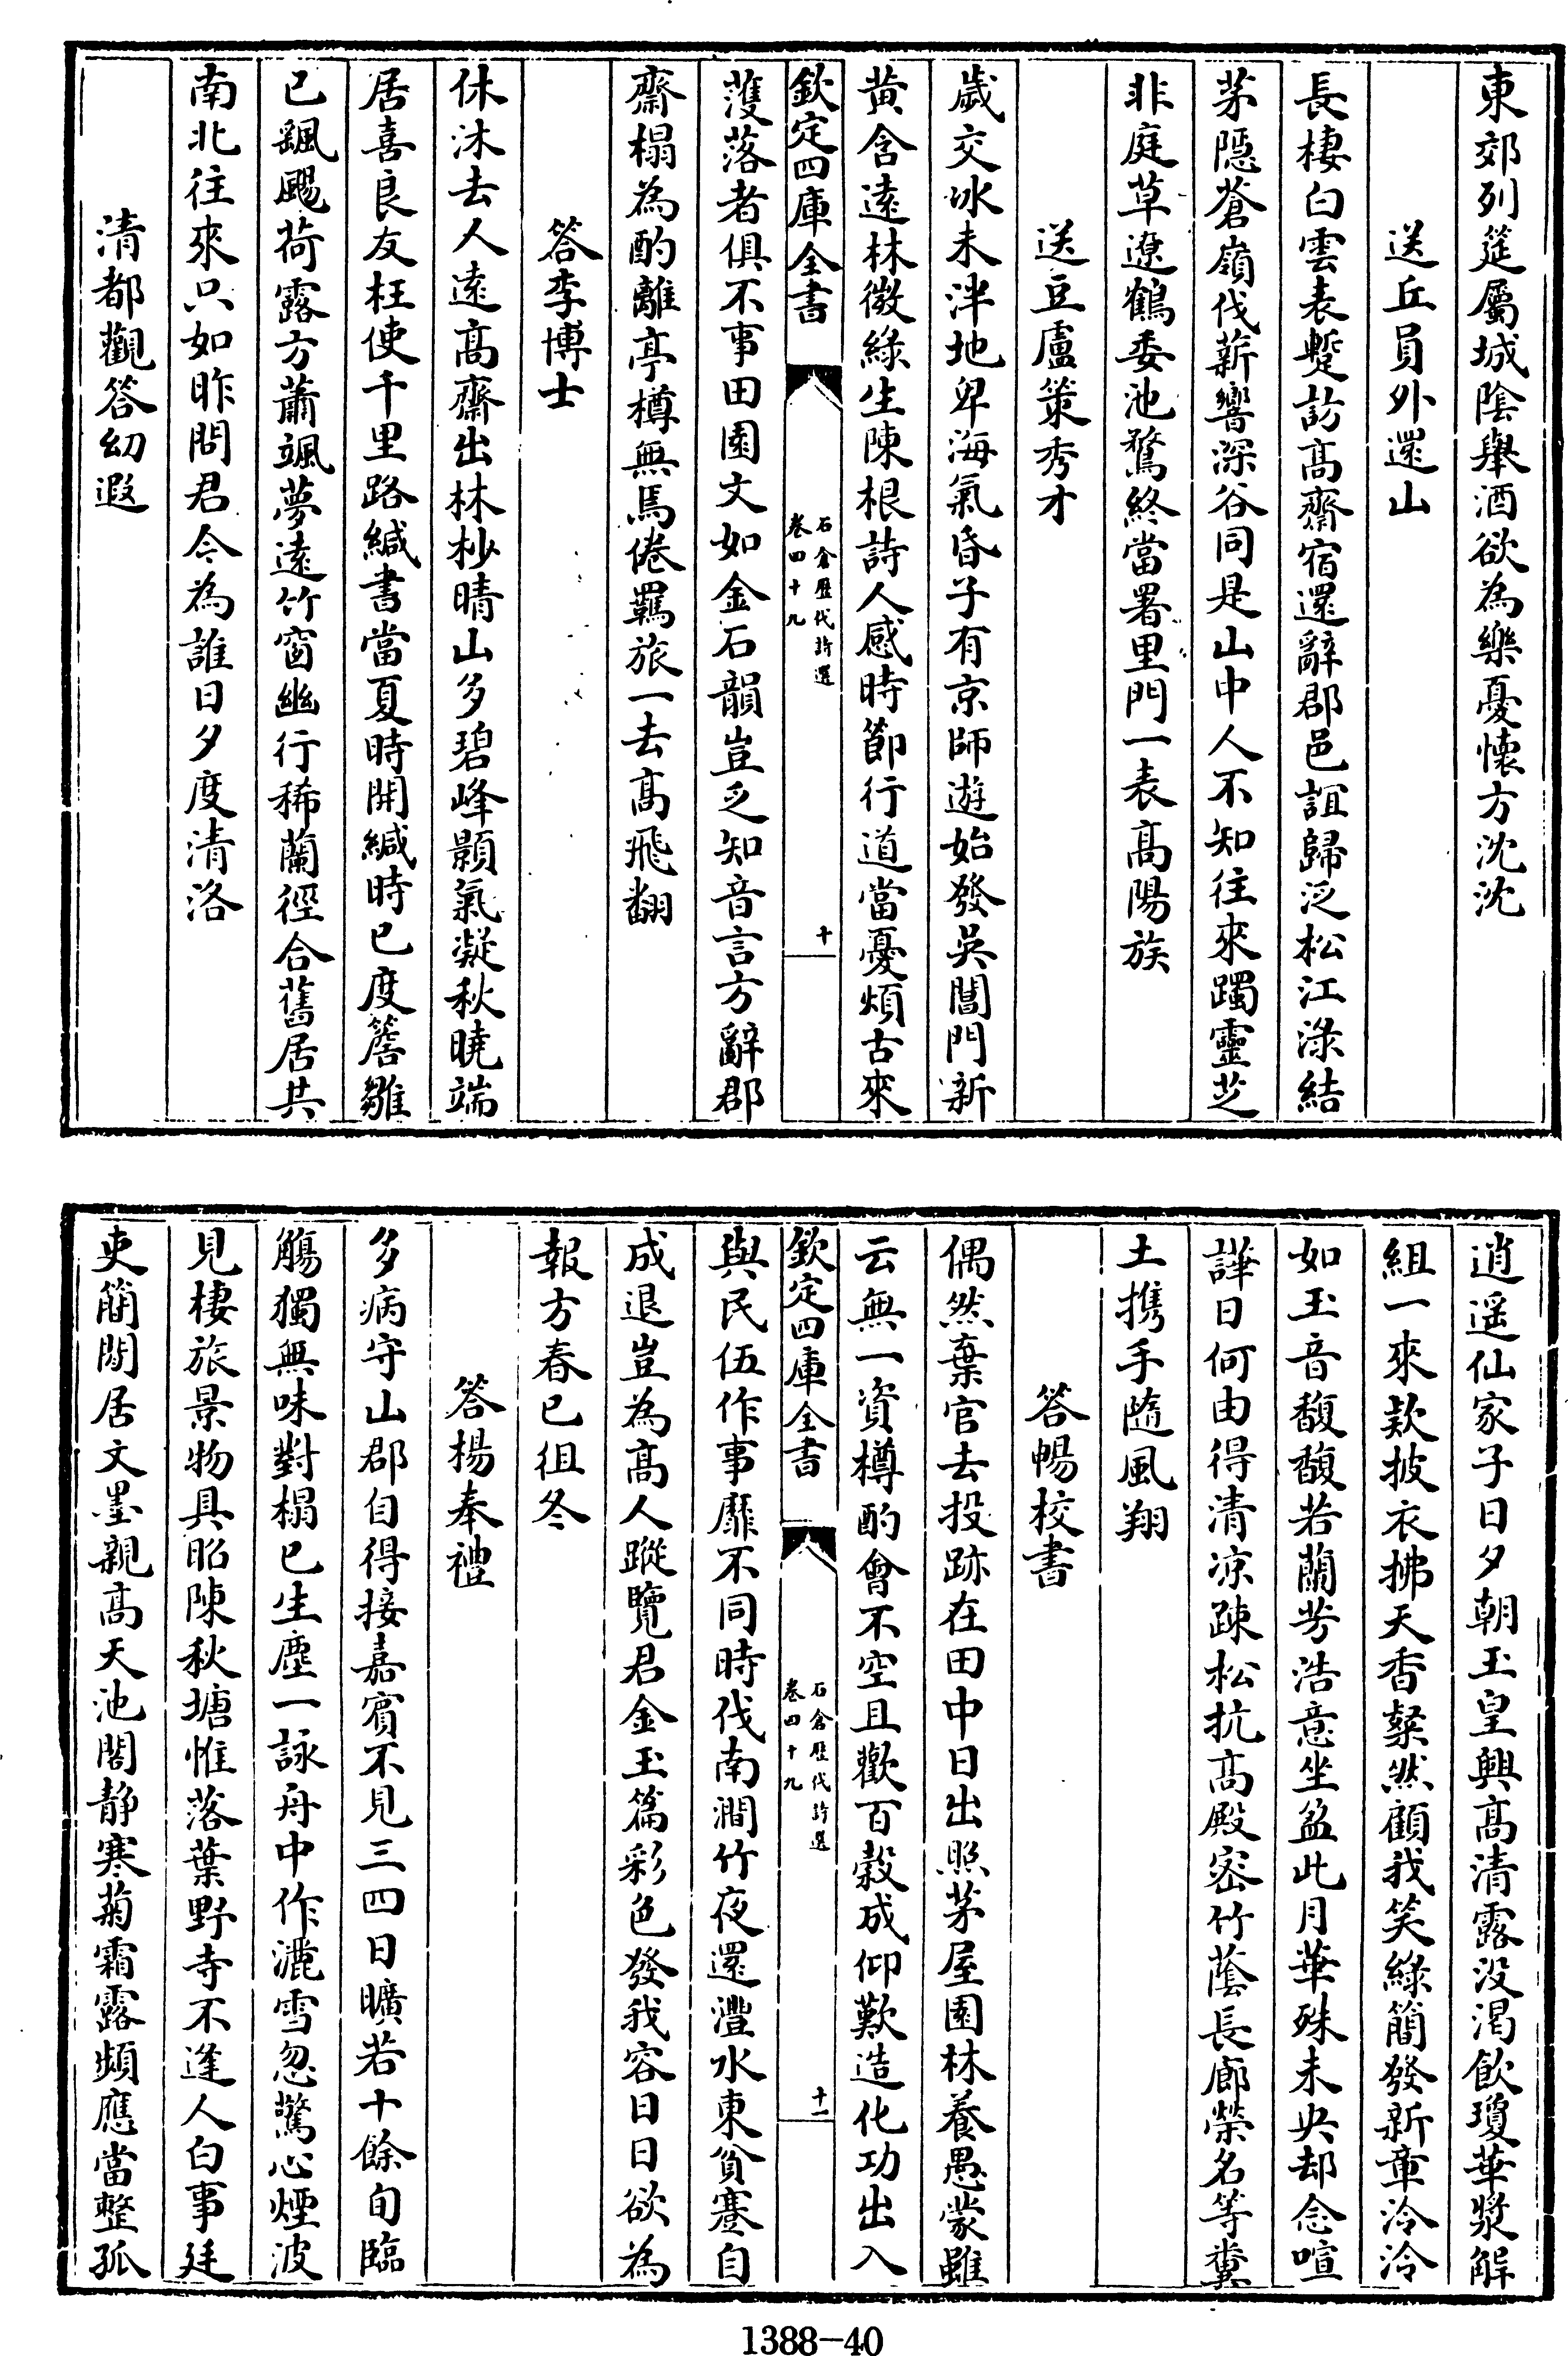 東郊列筵屬城陰舉酒欲為樂憂懷方沈沈
送丘員外還山
長棲白雲表蹔訪高齋宿還辭郡邑諠歸泛松江淥結
茅隱蒼嶺伐薪響深谷同是山中人不知往來躅靈芝
非庭草遼鶴委池鶩終當署里門一表高陽族
送豆盧策秀才
歲交冰未泮地卑海氣昏子有京師遊始發吳閶門新
黃含遠林微綠生陳根詩人感時節行道當憂煩古來
欽定四庫全書
石倉歷代詩選
卷四十九
十
濩落者俱不事田園文如金石韻豈乏知音言方辭郡
齋榻為酌離亭樽無為倦羈旅一去高飛翻
答李博士
休沐去人遠高齋出林杪晴山多碧峰顥氣凝秋曉端
居喜良友枉使千里路緘書當夏時開緘時已度簷雛
已飄颺荷露方蕭颯夢遠竹窗幽行稀蘭徑合舊居共
南北往來只如昨問君今為誰日夕度清洛
清都觀答幼遐
逍遥仙家子日夕朝玉皇興高清露没渴飲瓊華漿解
組一來款披衣拂天香粲然顧我笑綠簡發新章泠泠
如玉音馥馥若蘭芳浩意坐盈此月華殊未央却念喧
譁日何由得清凉疎松抗高殿密竹蔭長廊榮名等糞
土携手隨風翔
答暢校書
偶然棄官去投跡在田中日出照茅屋園林養愚蒙雖
云無一資樽酌會不空且歡百榖成仰歎造化功出入
欽定四庫全書
石倉歷代詩選
卷四十九
十一
與民伍作事靡不同時伐南澗竹夜還灃水東貧蹇自
成退豈為高人蹤覽君金玉篇彩色發我容日日欲為
報方春已徂冬
答楊奉禮
多病守山郡自得接嘉賓不見三四日曠若十餘旬臨
觴獨無味對榻已生塵一詠舟中作灑雪忽驚心煙波
見棲旅景物具昭陳秋塘惟落葉野寺不逢人白事廷
吏簡閒居文墨親高天池閣静寒菊霜露頻應當整孤
1388-40